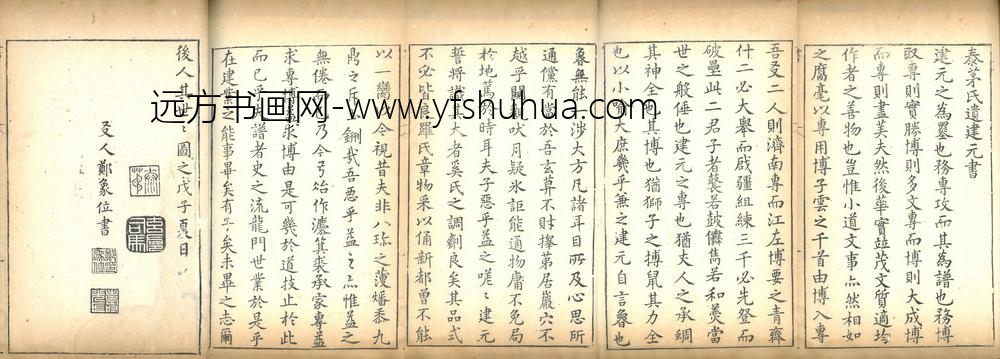 泰茅氏遺建元書
建元之為墨也務專攻而其為譜也務博
取專則實勝博則多文專而博則大成博
而專則盡美夫然後華實竝茂文質適均
作者之善物也豈惟小道文事亦然相如
之腐毫以專用博子雲之千首由博入專
吾友二人則濟南專而江左博要之青齊
什二必大舉而啟疆組練三千必先登而
破壘此二君子者襲若鼓儺雋若和羹當
世之般倕也建元之專也猶丈人之承蜩
其神全也其博也猶獅子之搏鼠其力全
也以小道大庶幾乎兼之建元自言魯也
魯無能一涉大方凡諸耳目所及心思所
通儒有當於吾玄算不財擇第居巖穴不
越乎關吠月疑氷詎能通物庸不免局
於地篤於時耳夫子惡乎益之嗟〻建元
誓將識其大者奚氏之調劑良矣其品式
不必皆良羅氏章物采以俑新都曾不能
以一臠今視昔夫非八珎之薄燔黍九
鼎之斥鉶哉吾惡乎益之惟益之
無倦乃今弓冶作箕裘承家專益
求專博益求博由是可幾於道技止於此
而已乎夫譜者史之流龍門世業於是乎
在建業之能事畢矣有矣未畢之志爾
後人其世〻圖之戊子夏日
友人鄭象位書
远方书画网-www.yfshuhua.com